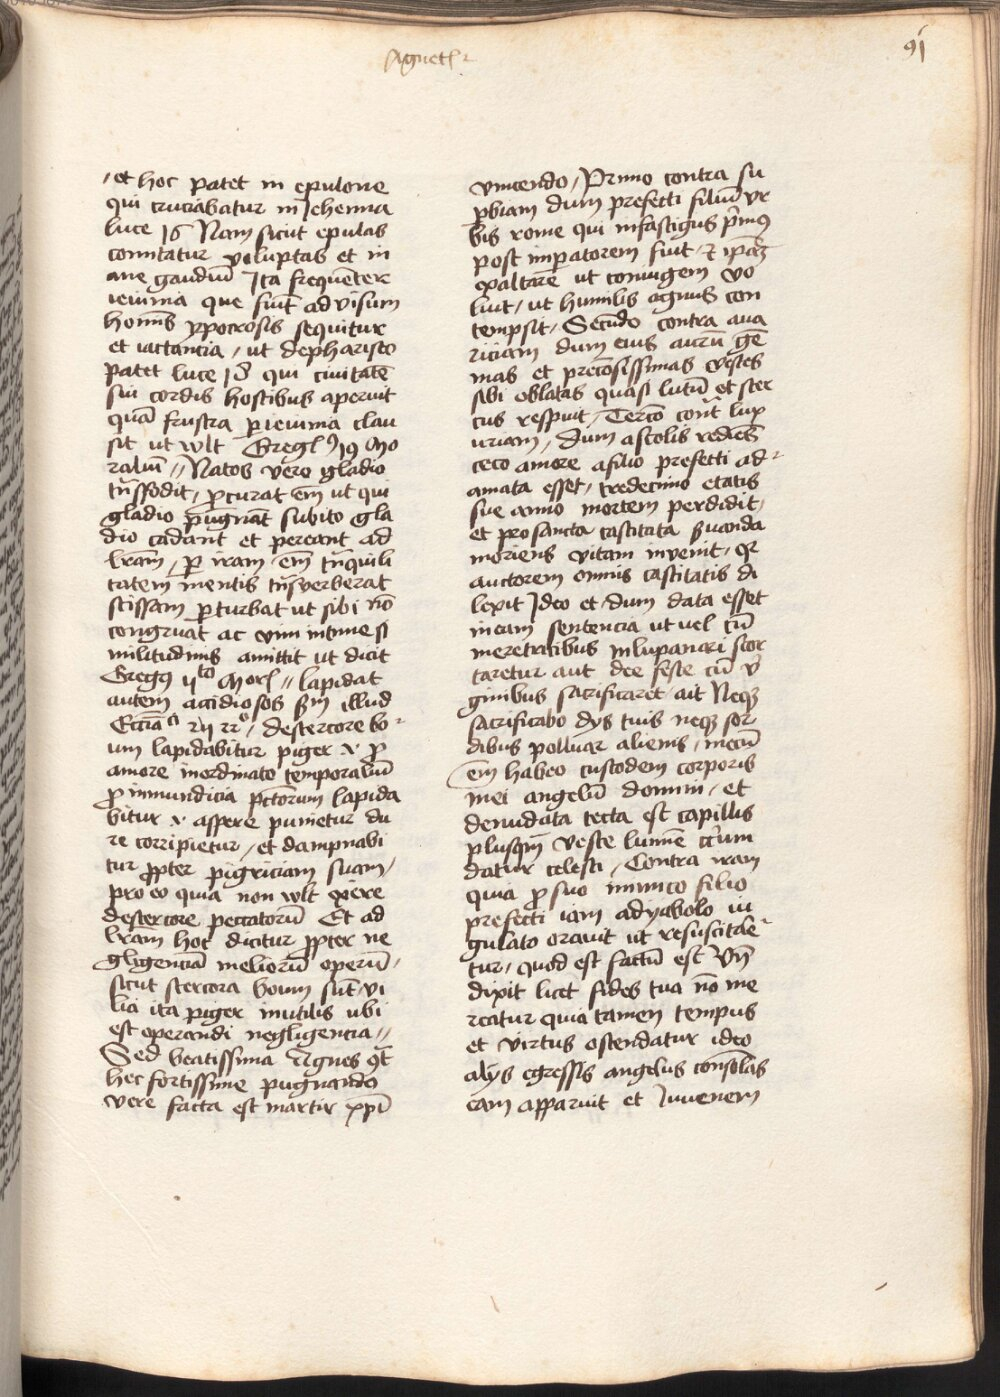 Agnet
91
et hoc patet in epulone
qui cruciabatur in Jehenna
luce 16 Nam sicut epulas
comitatur voluptas et in
ane gaudiū Ita frequēter
ieiunia que fiūt ad visum
homīs ypocrosis sequitur
et iactancia / ut de phariseo
patet luce 18 qui ciuitatē
sui cordis hostibus aperuit
quā frustra per ieiunia clau
sit ut wlt Gregꝰ 19 Mo
raliū // Natos vero gladio
trāsfodit / procurat em̄ ut qui
gladio pugnāt subito gla
dio cadant et pereant ad
lrām / per iram em̄ trāquili
tatem mentis trāsverberat
scissam perturbat ut sibi nō
congruat ac vim intime si
militudinis amittit ut dicit
Gregꝰ Morl // lapidat
autem accidiosos sm̄ illud
Ecciā 22 / de stercore bo
um lapidabitur piger pro
amore inordinato temporaliū
pro inmundicia pctōrum lapida
bitur aspere punietur du
re corripietur / et dampnabi
tur propter pigriciam suam /
pro eo quia non wlt exire
de stercore peccatorū Et ad
lrām hoc dicitur propter ne
gligenciā meliorū operū /
sicut stercora boum sūt vi
lia ita piger inutilis ubi
est operandi negligencia //
Sed beatissima Agnes
hec fortissime pugnando
vere facta est martir xpī
vincendo / Primo contra su
perbiam dum prefecti filiū vr
bis rome qui in fastigus prīmꝰ
post imperatorem fuit / et ipam
exaltare ut coniugem vo
luit / ut humilis agnus con
tempsit / Secūdo contra aua
riciam dum eius aurū gē
mas et preciosissimas vestes
sibi oblatas quasi lutū et ster
cus respuit / Tercō cont̄ lux
uriam / dum a scolis rediēs
ceco amore a filio prefecti ad
amata esset / tredecimo etatis
sue anno mortem perdidit /
et pro sancta castitata seruanda
moriens vitam invenit / qꝛ
auctorem omnis castitatis di
lexit Ideo et dum data esset
in eam sentencia ut vel cū
meretricibus in lupanari scor
taretur aut dee feste cū vir
ginibus sacrificaret ait Neqꝫ
sacrificabo dys tuis neqꝫ sor
dibus polluar alienis / mecū
em̄ habeo custodem corporis
mei angelū domini / et
denudata tecta est capillis
plusqm̄ veste lumīe circum
datur celesti / Contra iram
quia pro suo inimico filio
prefecti iam a dyabolo iu
gulato orauit ut resuscitare
tur / quod est factū est Vn̄
dixit licet fides tua nō me
reatur quia tamen tempus
et virtus ostendatur ideo
alys egressis angelus consolās
eam apparuit et Iuuenem